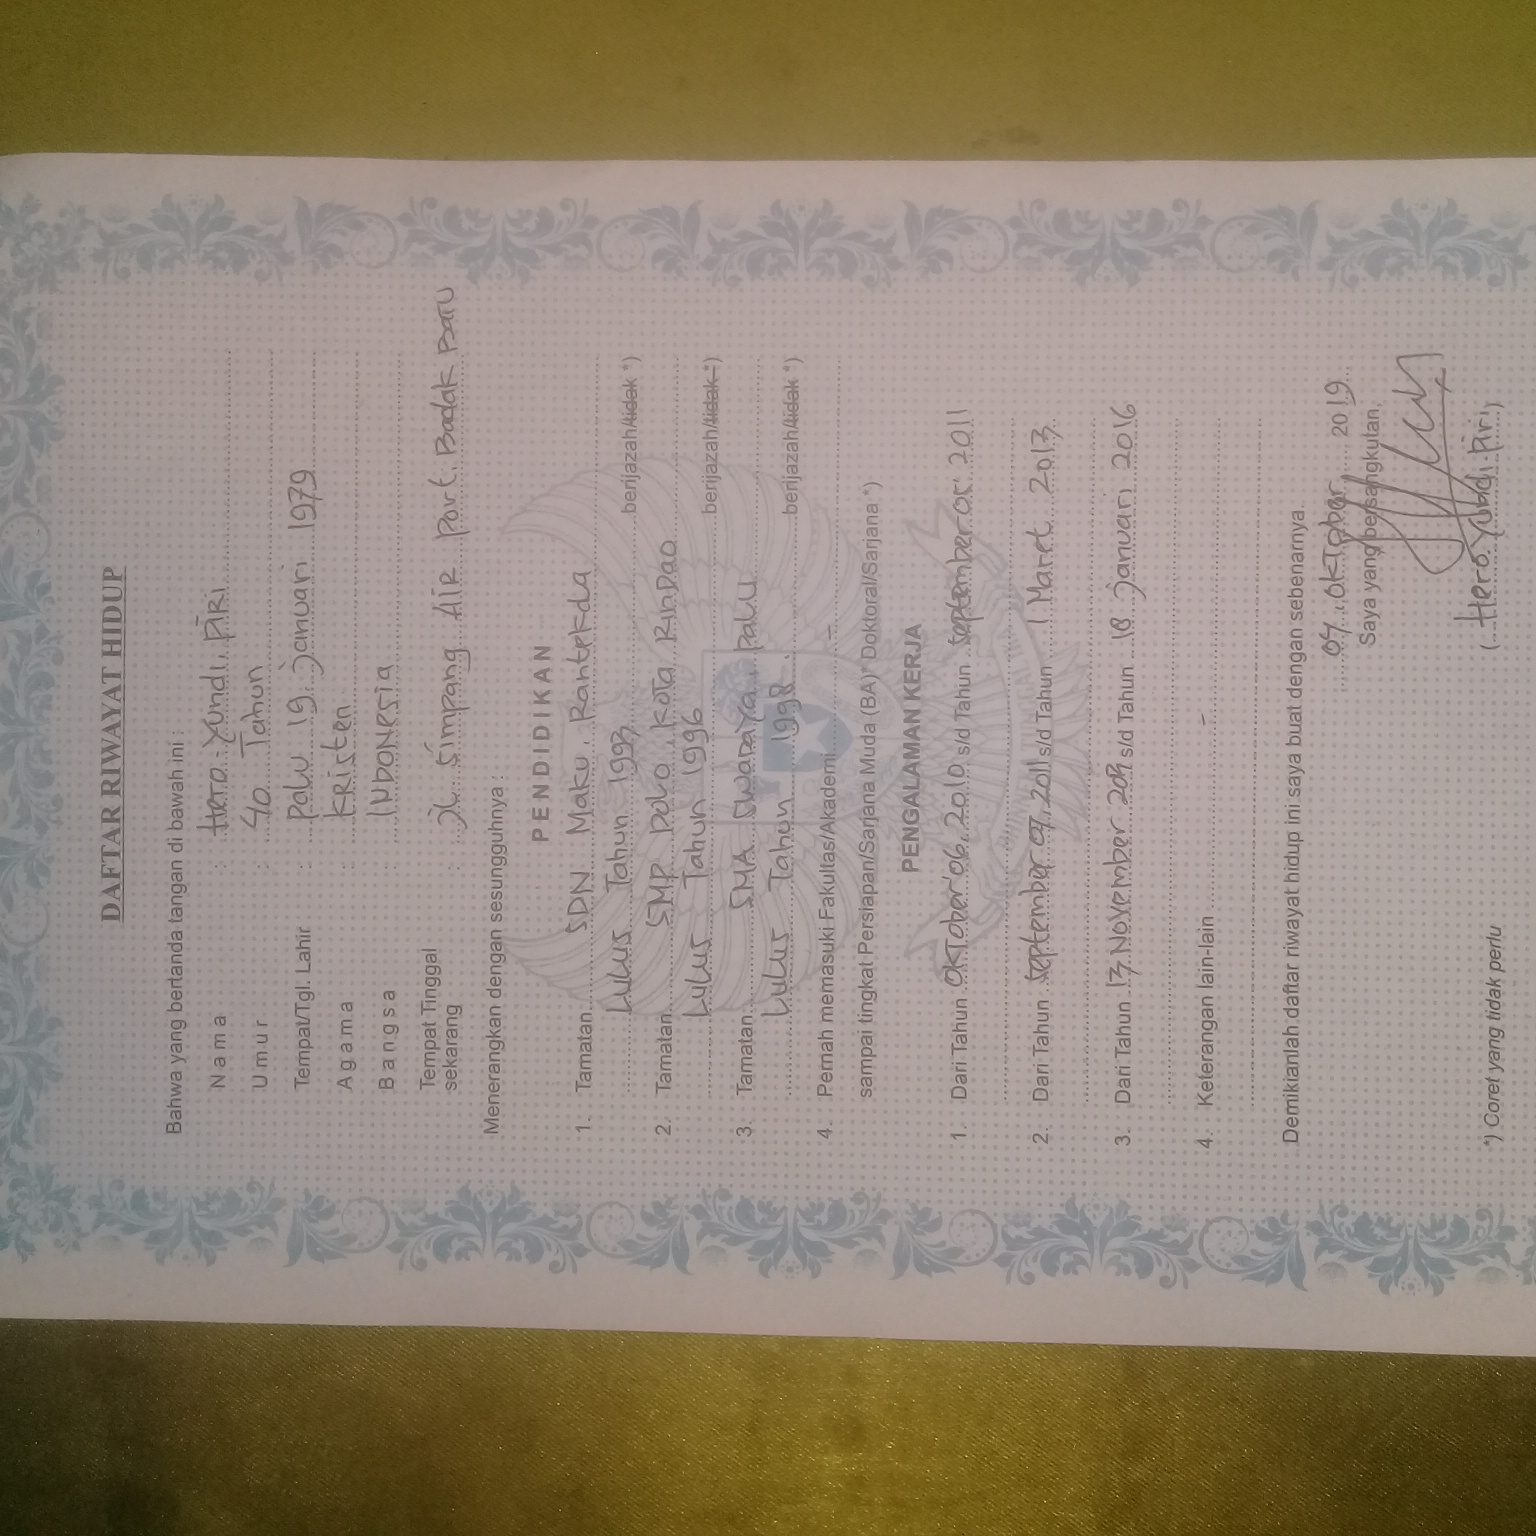 DAFTAR RIWAYAT HIDUP
Bahwa yang bertanda tangan di bawah ini :
Nama : Hero.Yundi. PIRI
Umur : 40 Tahun
Tempat/Tgl. Lahir : Palu 19. januari 1979
Agama : KRisten
Bangsa : INDONesia
Tempat Tinggal
sekarang : jl. Simpang AIR Port. Badak Baru
Menerangkan dengan sesungguhnya :
PENDIDIKAN
1. Tamatan SDN Maku.
Lulus Tahun 1993 berijazah/tidak *)
2. Tamatan SMP DOLO. KOTA RINDAO
Lulus Tahun 1996 berijazah/tidak *)
3. Tamatan SMA SWADAYA. PALU
Lulus Tahun 1998. berijazah/tidak *)
4. Pernah memasuki Fakultas/Akademi –
sampai tingkat Persiapan/Sarjana Muda (BA)* Doktoral/Sarjana *)
PENGALAMAN KERJA
1. Dari Tahun OKTober'06, 2010 s/d Tahun September 05' 2011
2. Dari Tahun September 07, 2011 s/d Tahun 1 Maret 2013
3. Dari Tahun 13 November s/d Tahun 18 januari 2016
4. Keterangan lain-lain –
Demikianlah daftar riwayat hidup ini saya buat dengan sebenarnya.
OKTober, 2019
Saya yang bersangkutan,
( Hero.Yundi.Piri )
*) Coret yang tidak perlu